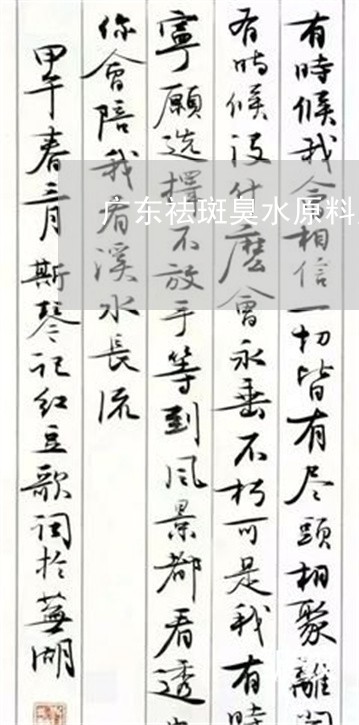 有時候我会相信一切皆有尽頭相聚離
有時候没什麼會永垂不朽可是我有時
寧願选擇不放手等到风景都看透
你會陪我看溪水長流
甲午春三月斯琴记红豆歌词於蕪湖
广东祛斑臭水原料